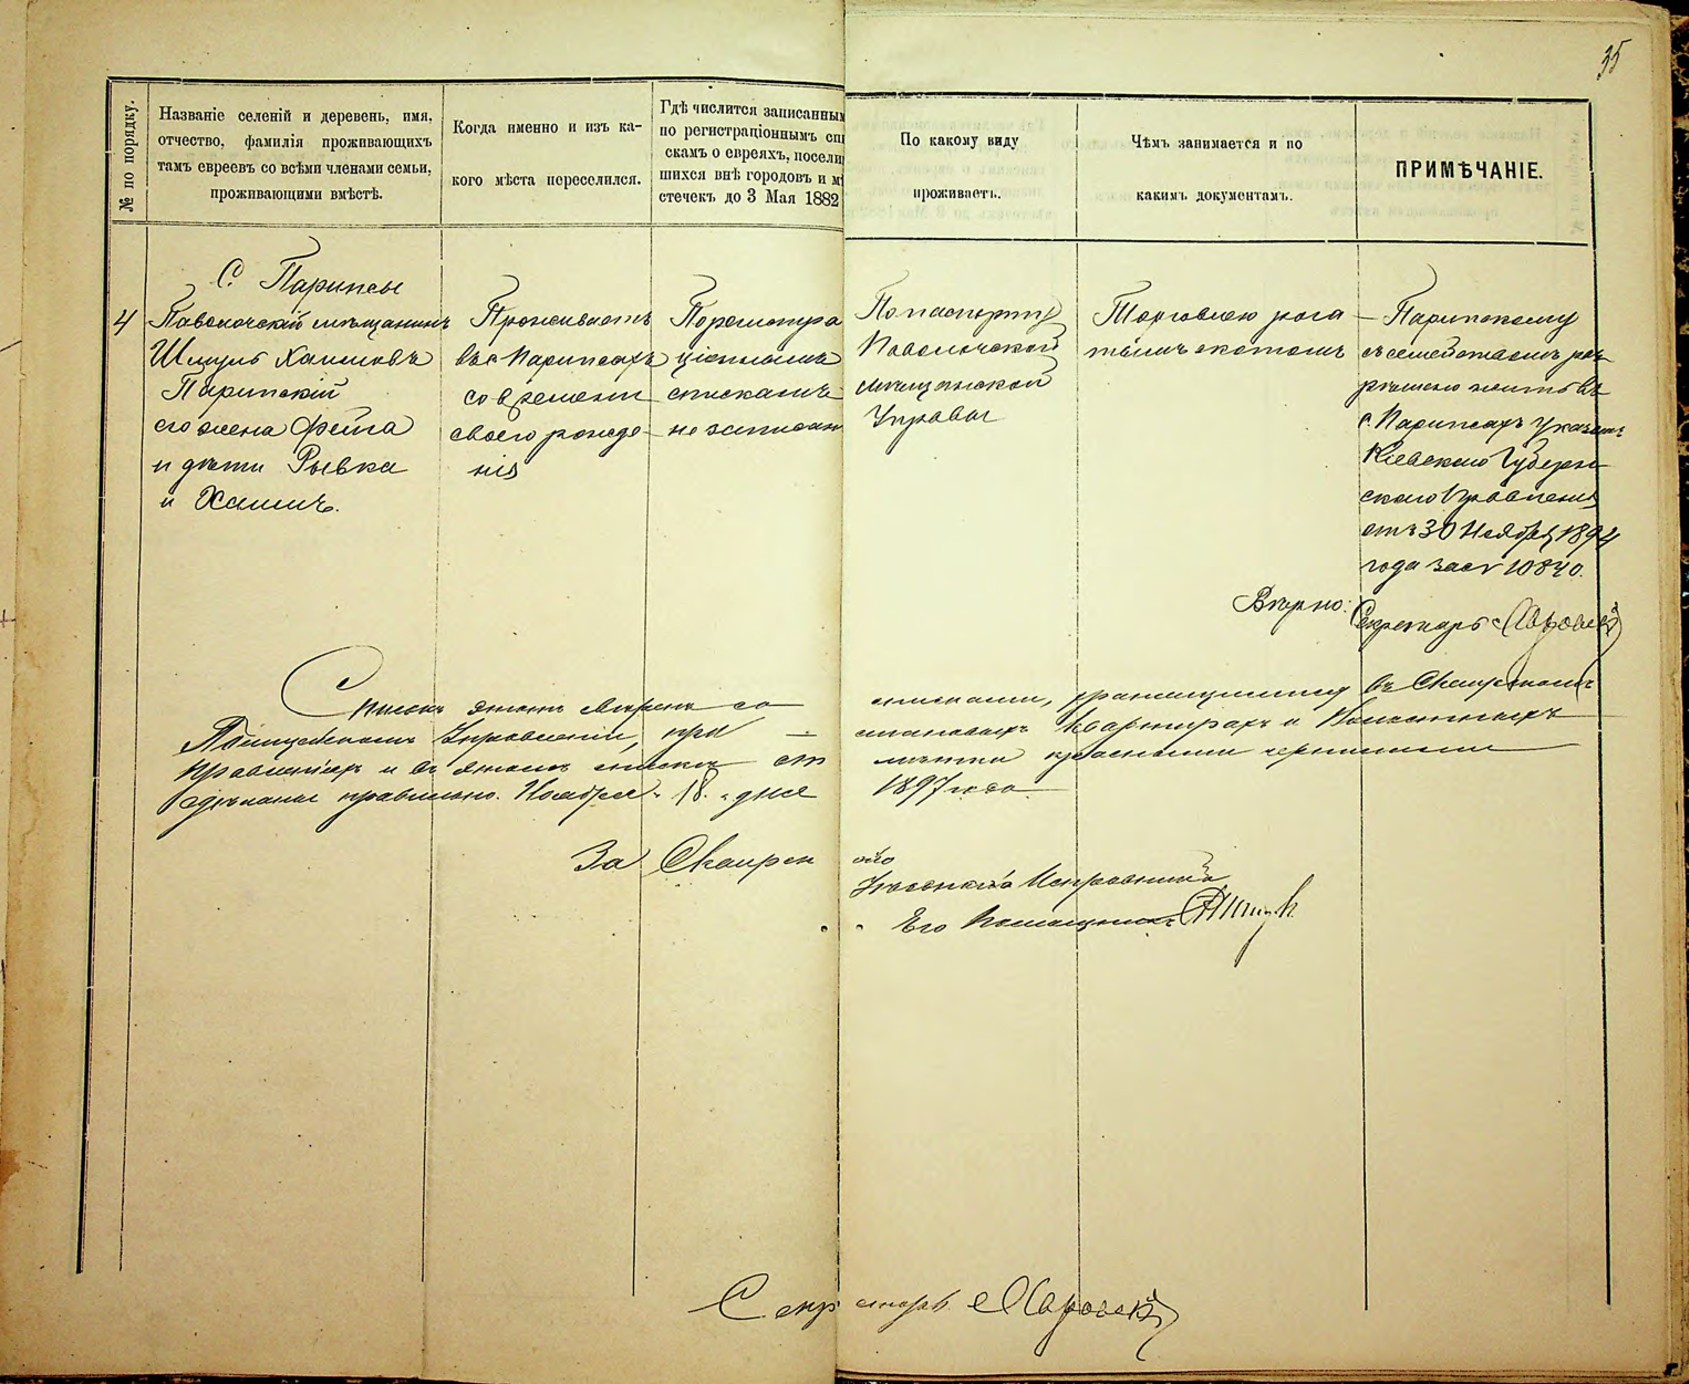 35
№ по порядку.
Названіе селеній и деревень, имя,
отчество, фамилія проживающихъ
тамъ евреевъ со всѣми членами семьи,
проживающими вмѣстѣ.
Когда именно и изъ ка-
кого мѣста переселился.
Гдѣ числится записаннымъ
по регистраціоннымъ спи
скамъ о евреяхъ, посели
шихся внѣ городовъ и мѣ
стечекъ до 3 Мая 1882
По какому виду
проживаетъ.
Чѣмъ занимается и по
какимъ документамъ.
ПРИМѢЧАНІЕ.
С. Парипсы
4
Паволочскій мѣщанинъ
Шмуль Хаимовъ
Парипскій
его жена Фейга
и дѣти Рывка
и Хаимъ.
Проживаетъ
въ с. Парипсахъ
со времени
своего рожде-
нія
По регистра
ціоннымъ
спискамъ
не записан
По паспорту
Паволочской
мѣщанской
Управы
Торговлею рога-
тымъ скотомъ
Парипскому
съ семействомъ раз
рѣшено жить въ
с. Парипсахъ указомъ
Кіевскаго Губерн-
скаго Правленія
отъ 30 Ноября 1894
года за № 10840.
Вѣрно: Секретарь
Списокъ этотъ свѣренъ со списками, хранящимися въ Сквирскомъ
Полицейскомъ Управленіи, при становыхъ квартирахъ и Волостныхъ
Правленіяхъ и въ этомъ спискѣ отмѣтки красными чернилами
сдѣланы правильно. Ноября "18" дня 1897 года
За Сквирскаго
Уѣзднаго Исправника
Его Помощникъ
Секретарь